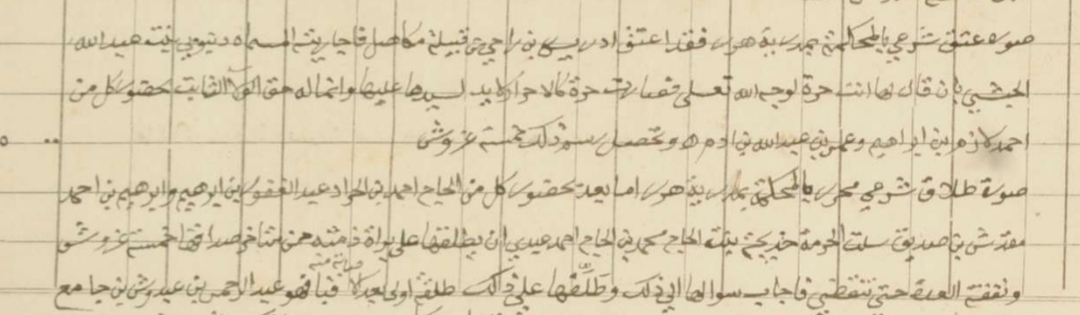 صورة عتق شرعي بالمحكمة بمدينة هرر فقد اعتق ادريس بن راجي من قبيلة قاجاريته المسماه بنت عبدالله
الحبشي بان قال لها انت حرة لوجه الله تعلى فصارت حرة كالاحرار لا يد لسيدها عليها وانما له حق الولا الثابت بحضور كل من
احمد بن ابراهيم وعمر بن عبدالله بن ادم وتحصل رسم ذلك خمسة غروش
صورة طلاق شرعي محرر بالمحكمة بمدينة هرر اما بعد بحضور كل من الحاج احمد بن الجراد عبد الغفور بن ابرهيم وابرهيم بن احمد
بن صديق سئلت الحرمة خديجة بنت الحاج محمد بن الحاج احمد عبدي ان يطلقها على براة ذمته من متاخر صداقها خمسة غروش
ونفقة العدة حتى تنقضي فاجاب سوالها الى ذلك وطلقها على ذالك طلقة اولى بعد عبد الرحمن بن عيدروش بن جامع